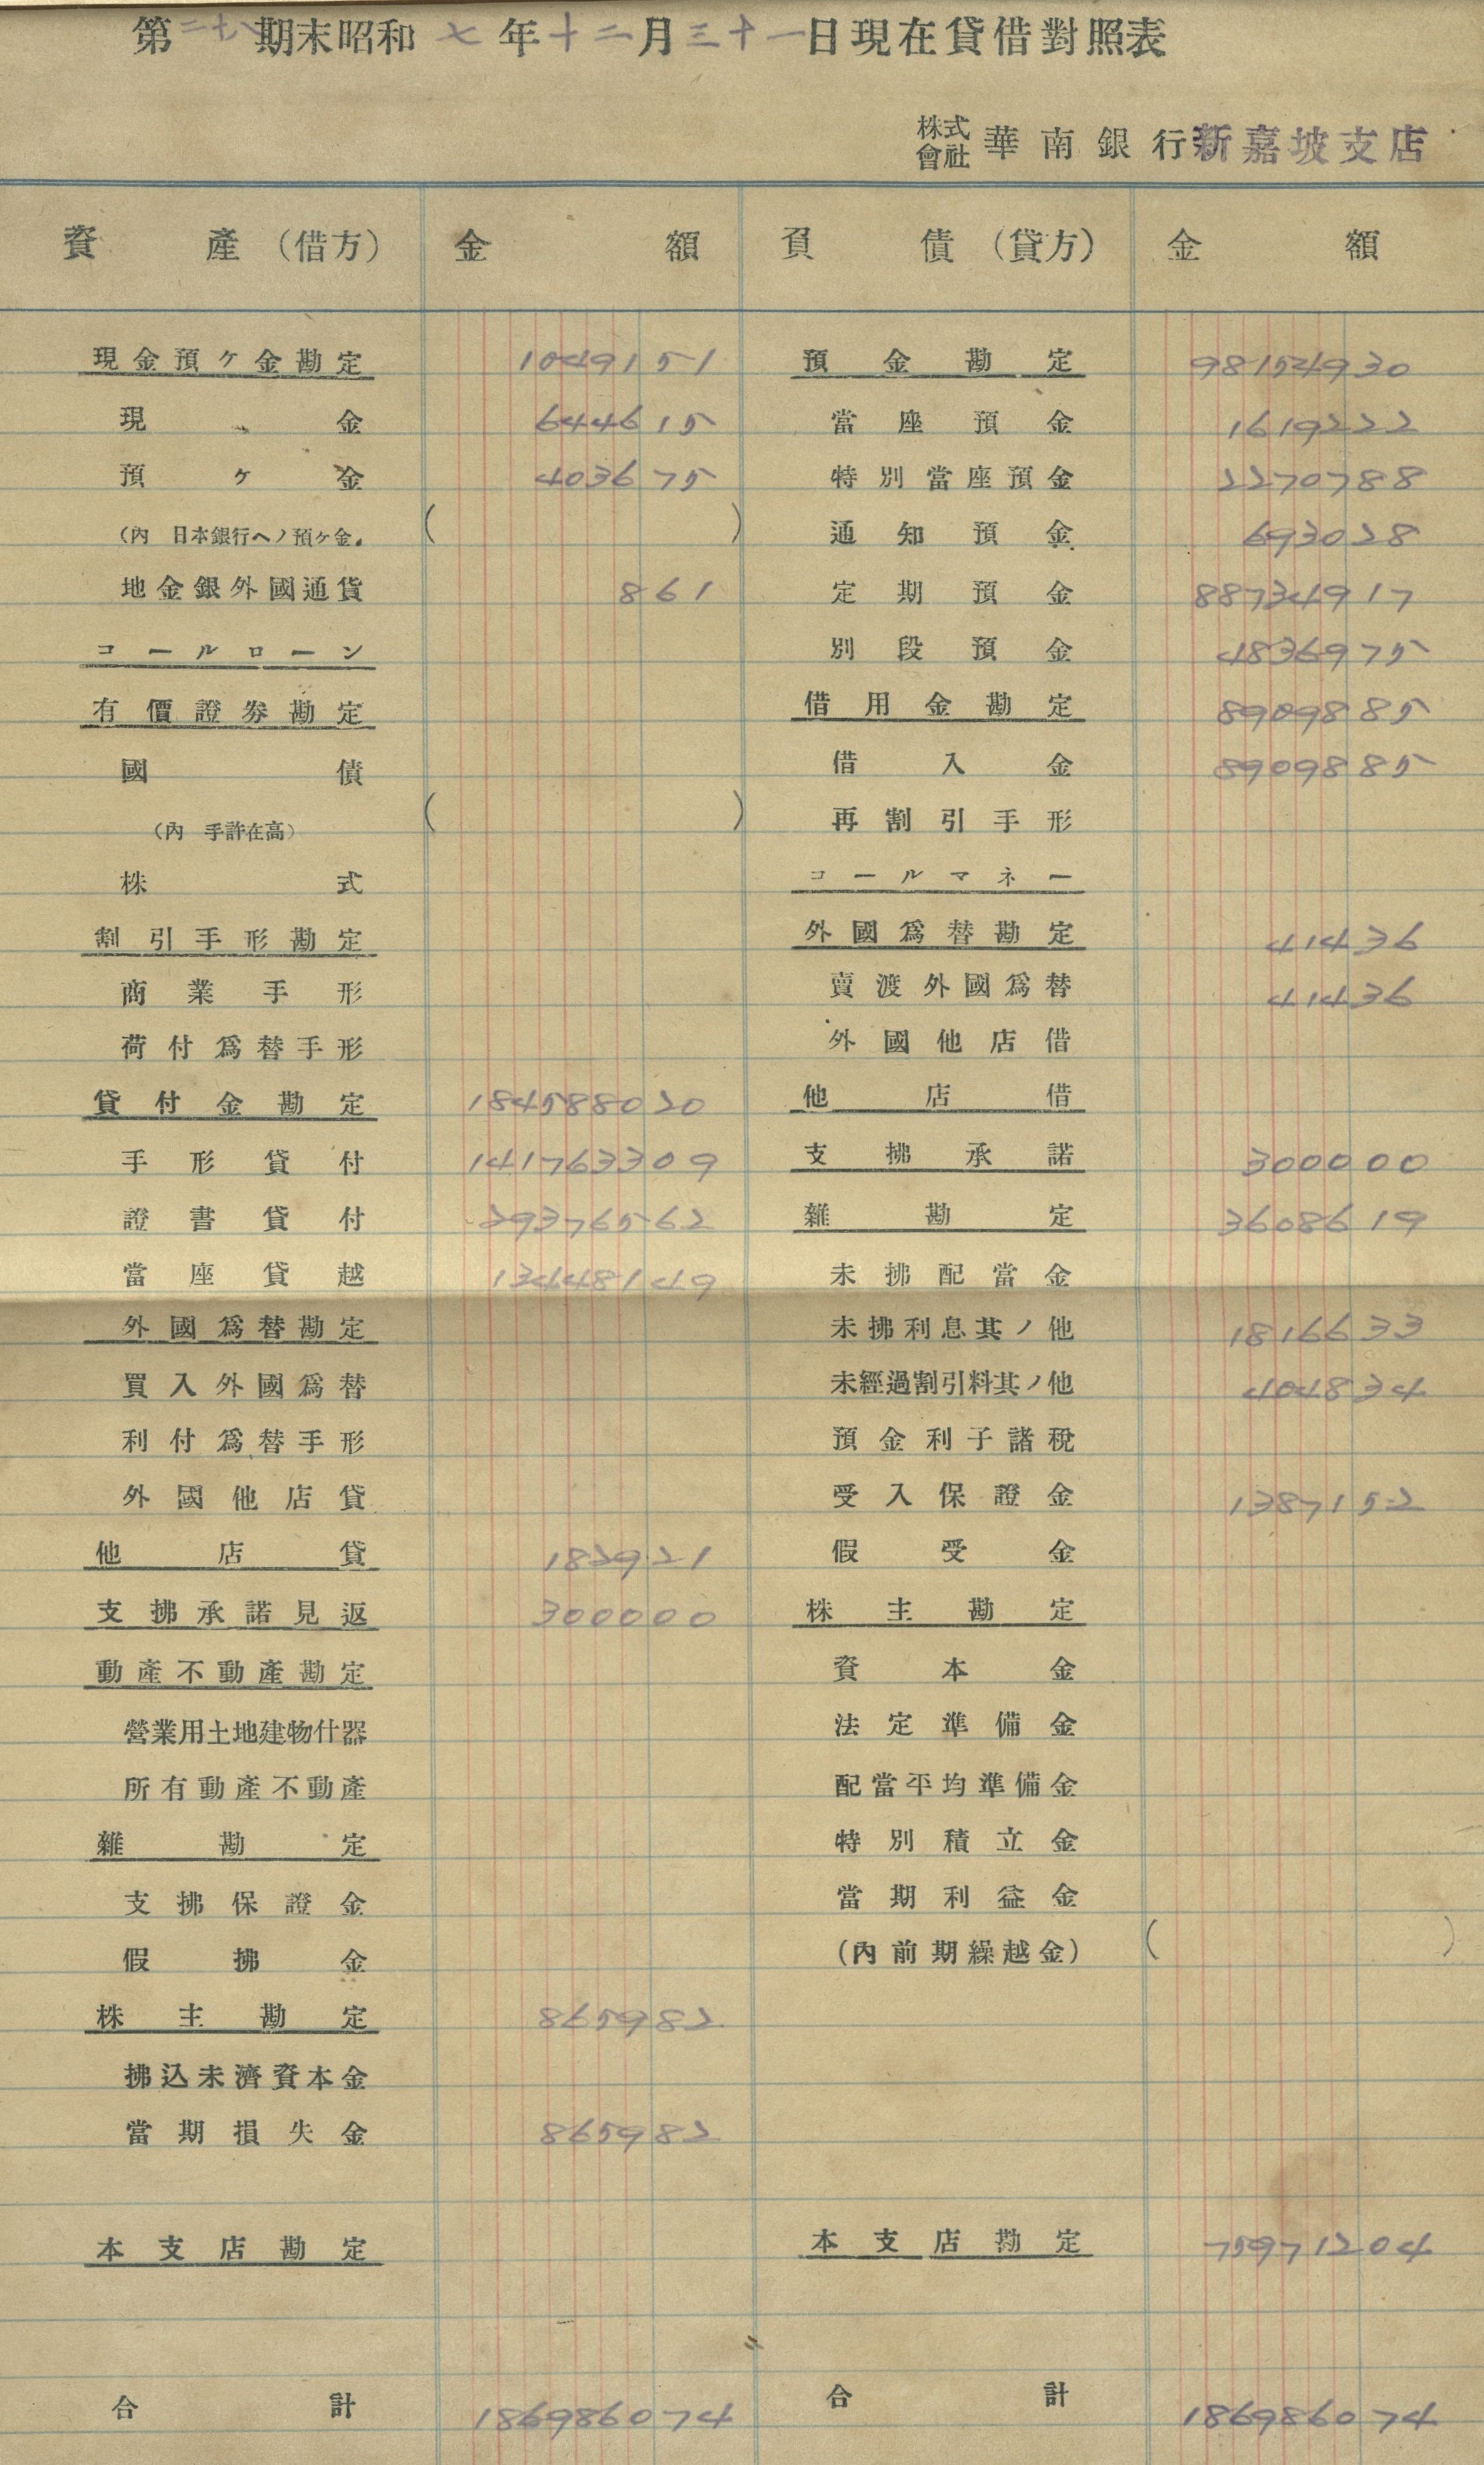 第二十八期末昭和七年十二月三十一日現在貸借對照表
株式會社 華南銀行新嘉坡支店
資產(借方) 金額 負債(貸方) 金額
現金預ケ金勘定 1049151
現金 644615
預ケ金 403675
(內 日本銀行ヘノ預ケ金) ( )
地金銀外國通貨 861
コールローン
有價證券勘定
國債
(內 手許在高) ( )
株式
割引手形勘定
商業手形
荷付爲替手形
貸付金勘定 184588020
手形貸付 141763309
證書貸付 29376562
當座貸越 13448149
外國爲替勘定
買入外國爲替
利付爲替手形
外國他店貸
他店貸 182921
支拂承諾見返 300000
動產不動產勘定
營業用土地建物什器
所有動產不動產
雜勘定
支拂保證金
假拂金
株主勘定 865982
拂込未濟資本金
當期損失金 865982
本支店勘定
合計 186986074
預金勘定 98154930
當座預金 1619222
特別當座預金 2270788
通知預金 693028
定期預金 88734917
別段預金 4836975
借用金勘定 8909885
借入金 8909885
再割引手形
コールマネー
外國爲替勘定 41436
賣渡外國爲替 41436
外國他店借
他店借
支拂承諾 300000
雜勘定 3608619
未拂配當金
未拂利息其ノ他 1816633
未經過割引料其ノ他 404834
預金利子諸稅
受入保證金 1387152
假受金
株主勘定
資本金
法定準備金
配當平均準備金
特別積立金
當期利益金
(內前期繰越金) ( )
本支店勘定 75971204
合計 186986074